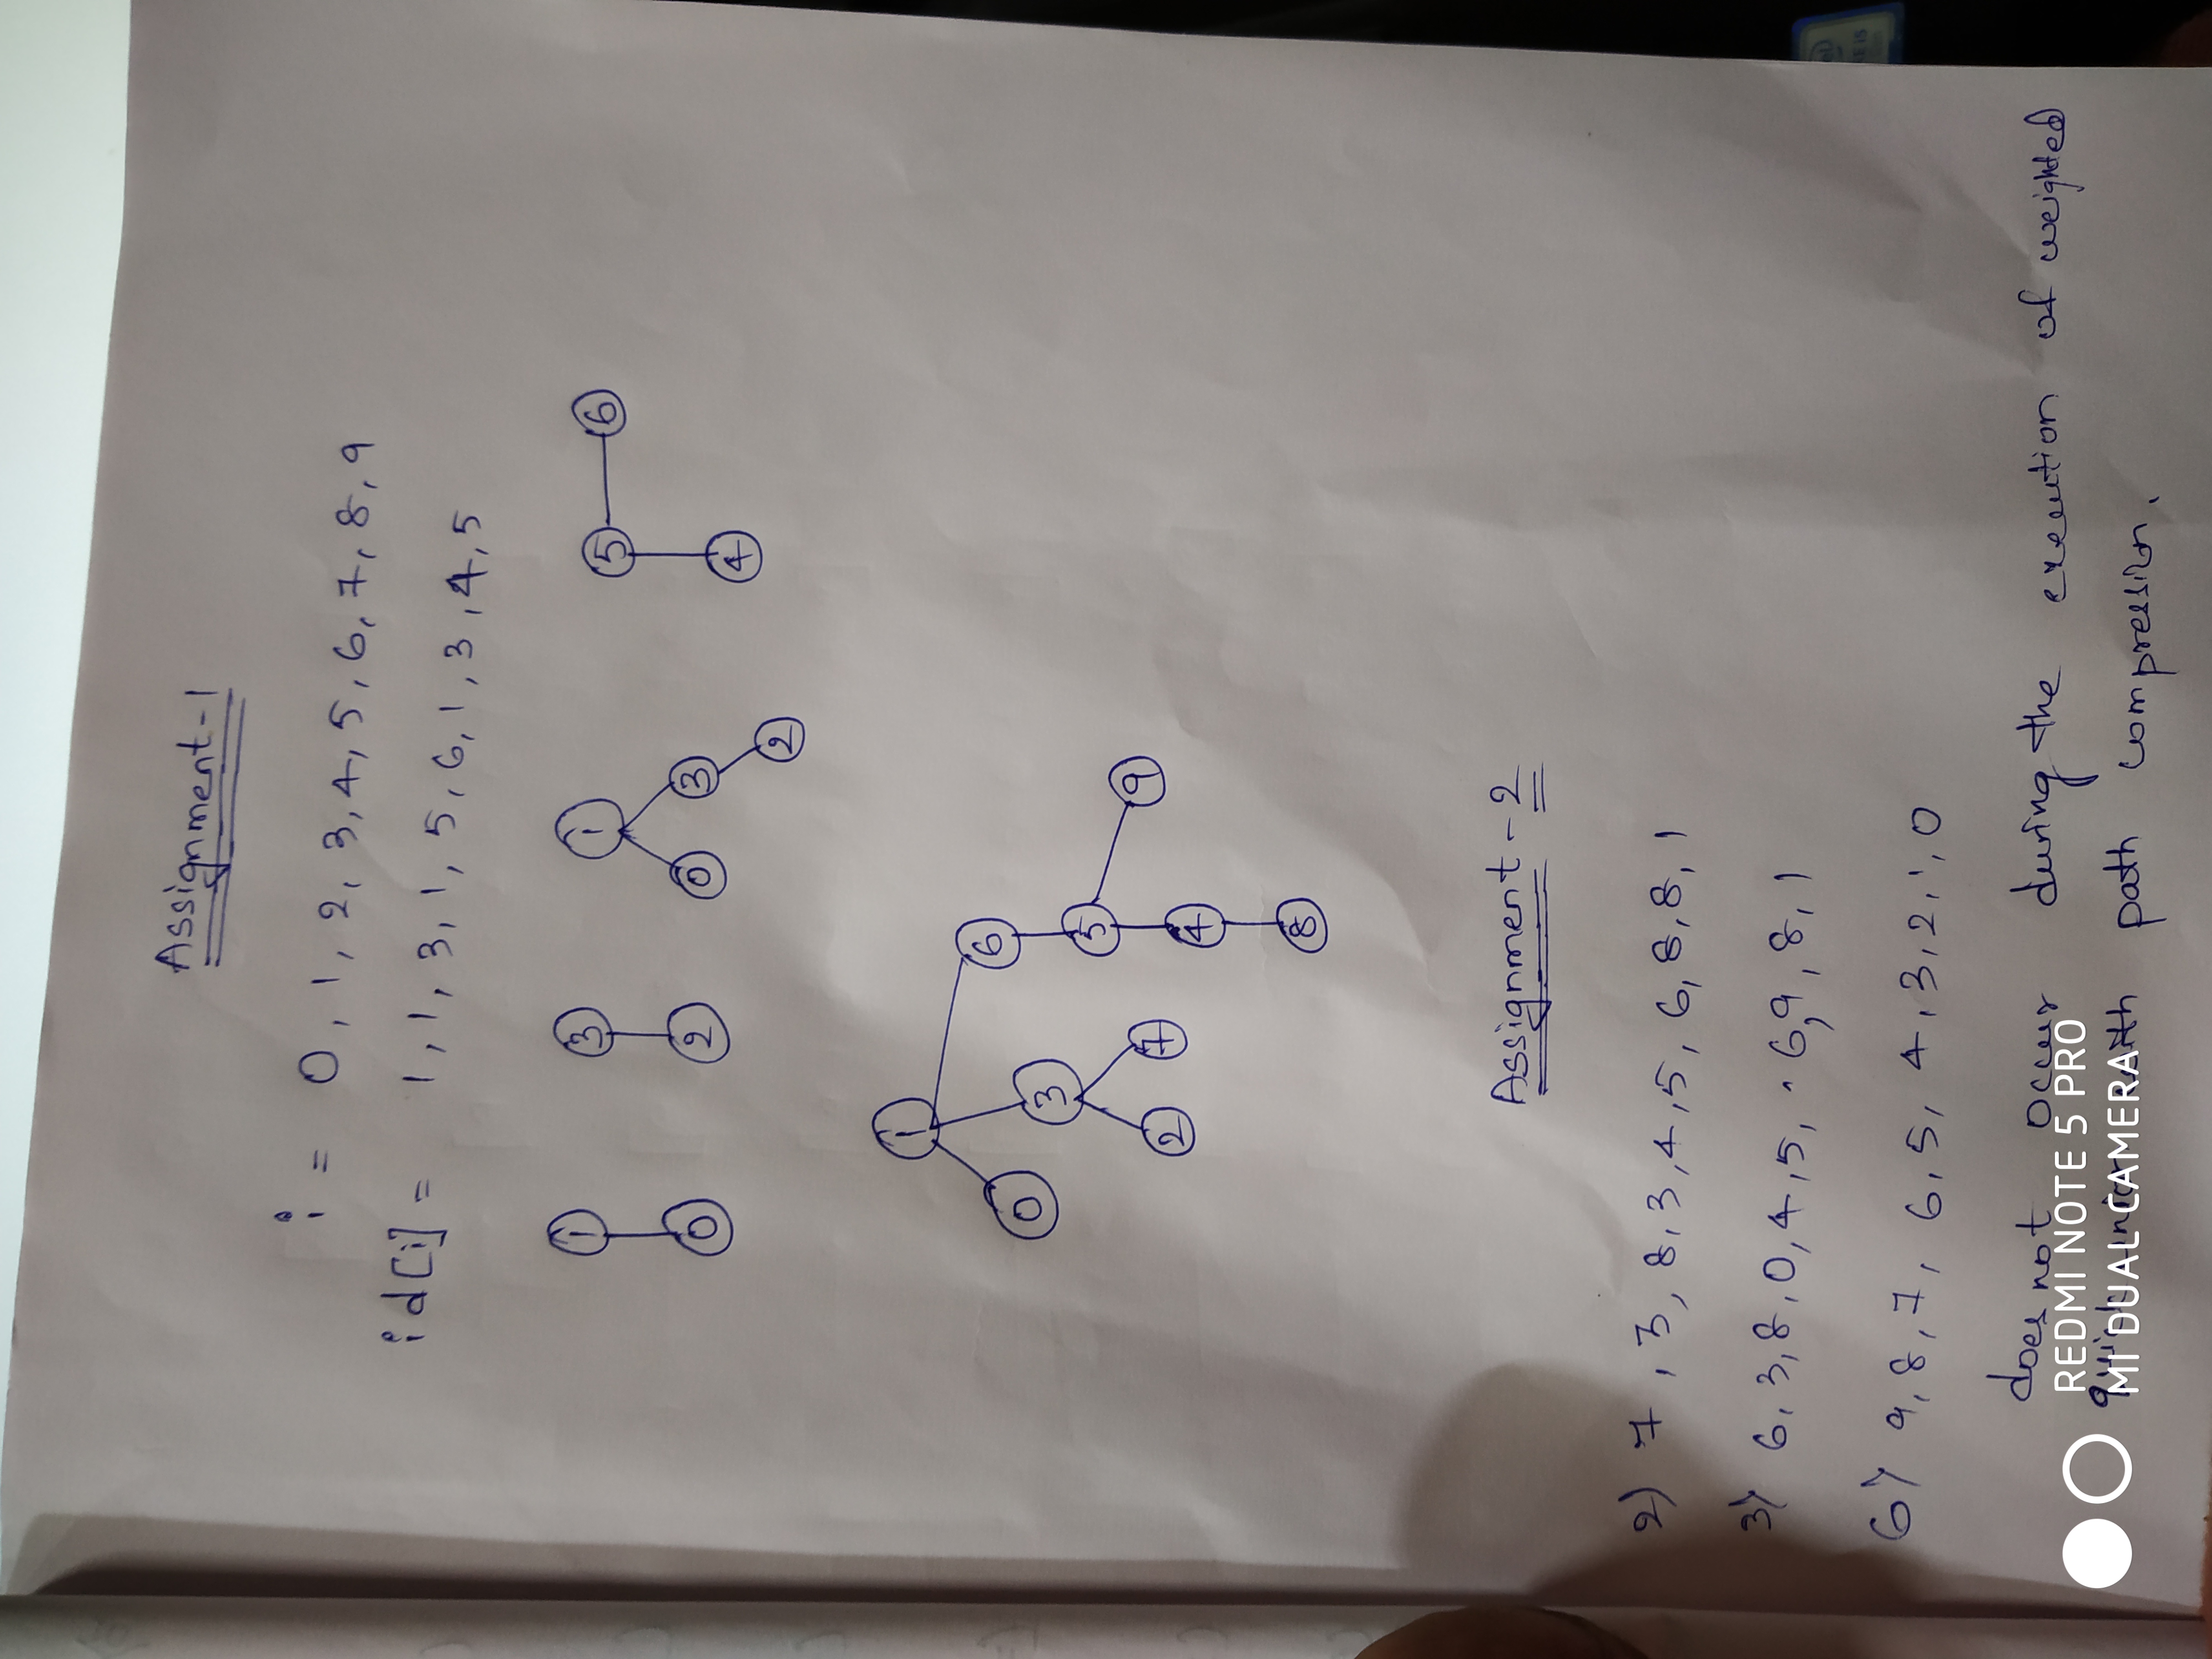 Assignment-1
i = 0, 1, 2, 3, 4, 5, 6, 7, 8, 9
id[i] = 1, 1, 3, 1, 5, 6, 1, 3, 4, 5
1 3 1 5 6
0 2 0 3 4
2
1
6
0 3
5 9
2 7
4
8
Assignment - 2
2) 7, 3, 8, 3, 4, 5, 6, 8, 8, 1
3) 6, 3, 8, 0, 4, 5, 6, 9, 8, 1
6) 9, 8, 7, 6, 5, 4, 3, 2, 1, 0
does not occur during the execution of weighted
quick union with path compression.
REDMI NOTE 5 PRO
MI DUAL CAMERA